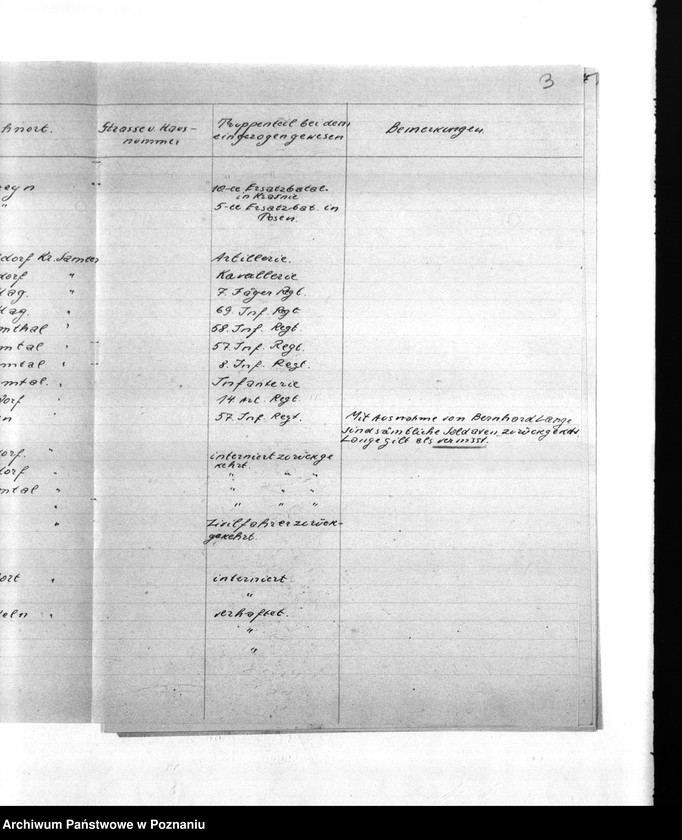 3
hnort. Strasse u. Haus- Truppenteil bei dem Bemerkungen.
nummer eingezogen gewesen
10-te Ersatzbatal.
in Krasnie
" 5-te Ersatzbat. in
Posen.
dorf Kr. Samter Artillerie.
dorf " Kavallerie
Hag. " 7. Jäger Rgt.
Hag. " 69. Inf. Rgt
mthal " 68. Inf. Regt.
mtal " 57. Inf. Regt.
mtal " 8. Inf. Regt.
mtal. " Infanterie
dorf " 14 Art. Regt.
en " 57. Inf. Regt. Mit Ausnahme von Bernhard Lange
sind sämtliche Soldaten zurückgekehrt.
Lange gilt als vermisst.
dorf. " interniert zurückge
kehrt.
dorf " " " "
mtal " " " "
" " " "
" Zivilfahrer zurück-
gekehrt.
ort " interniert.
"
eln " verhaftet.
"
"
Archiwum Państwowe w Poznaniu